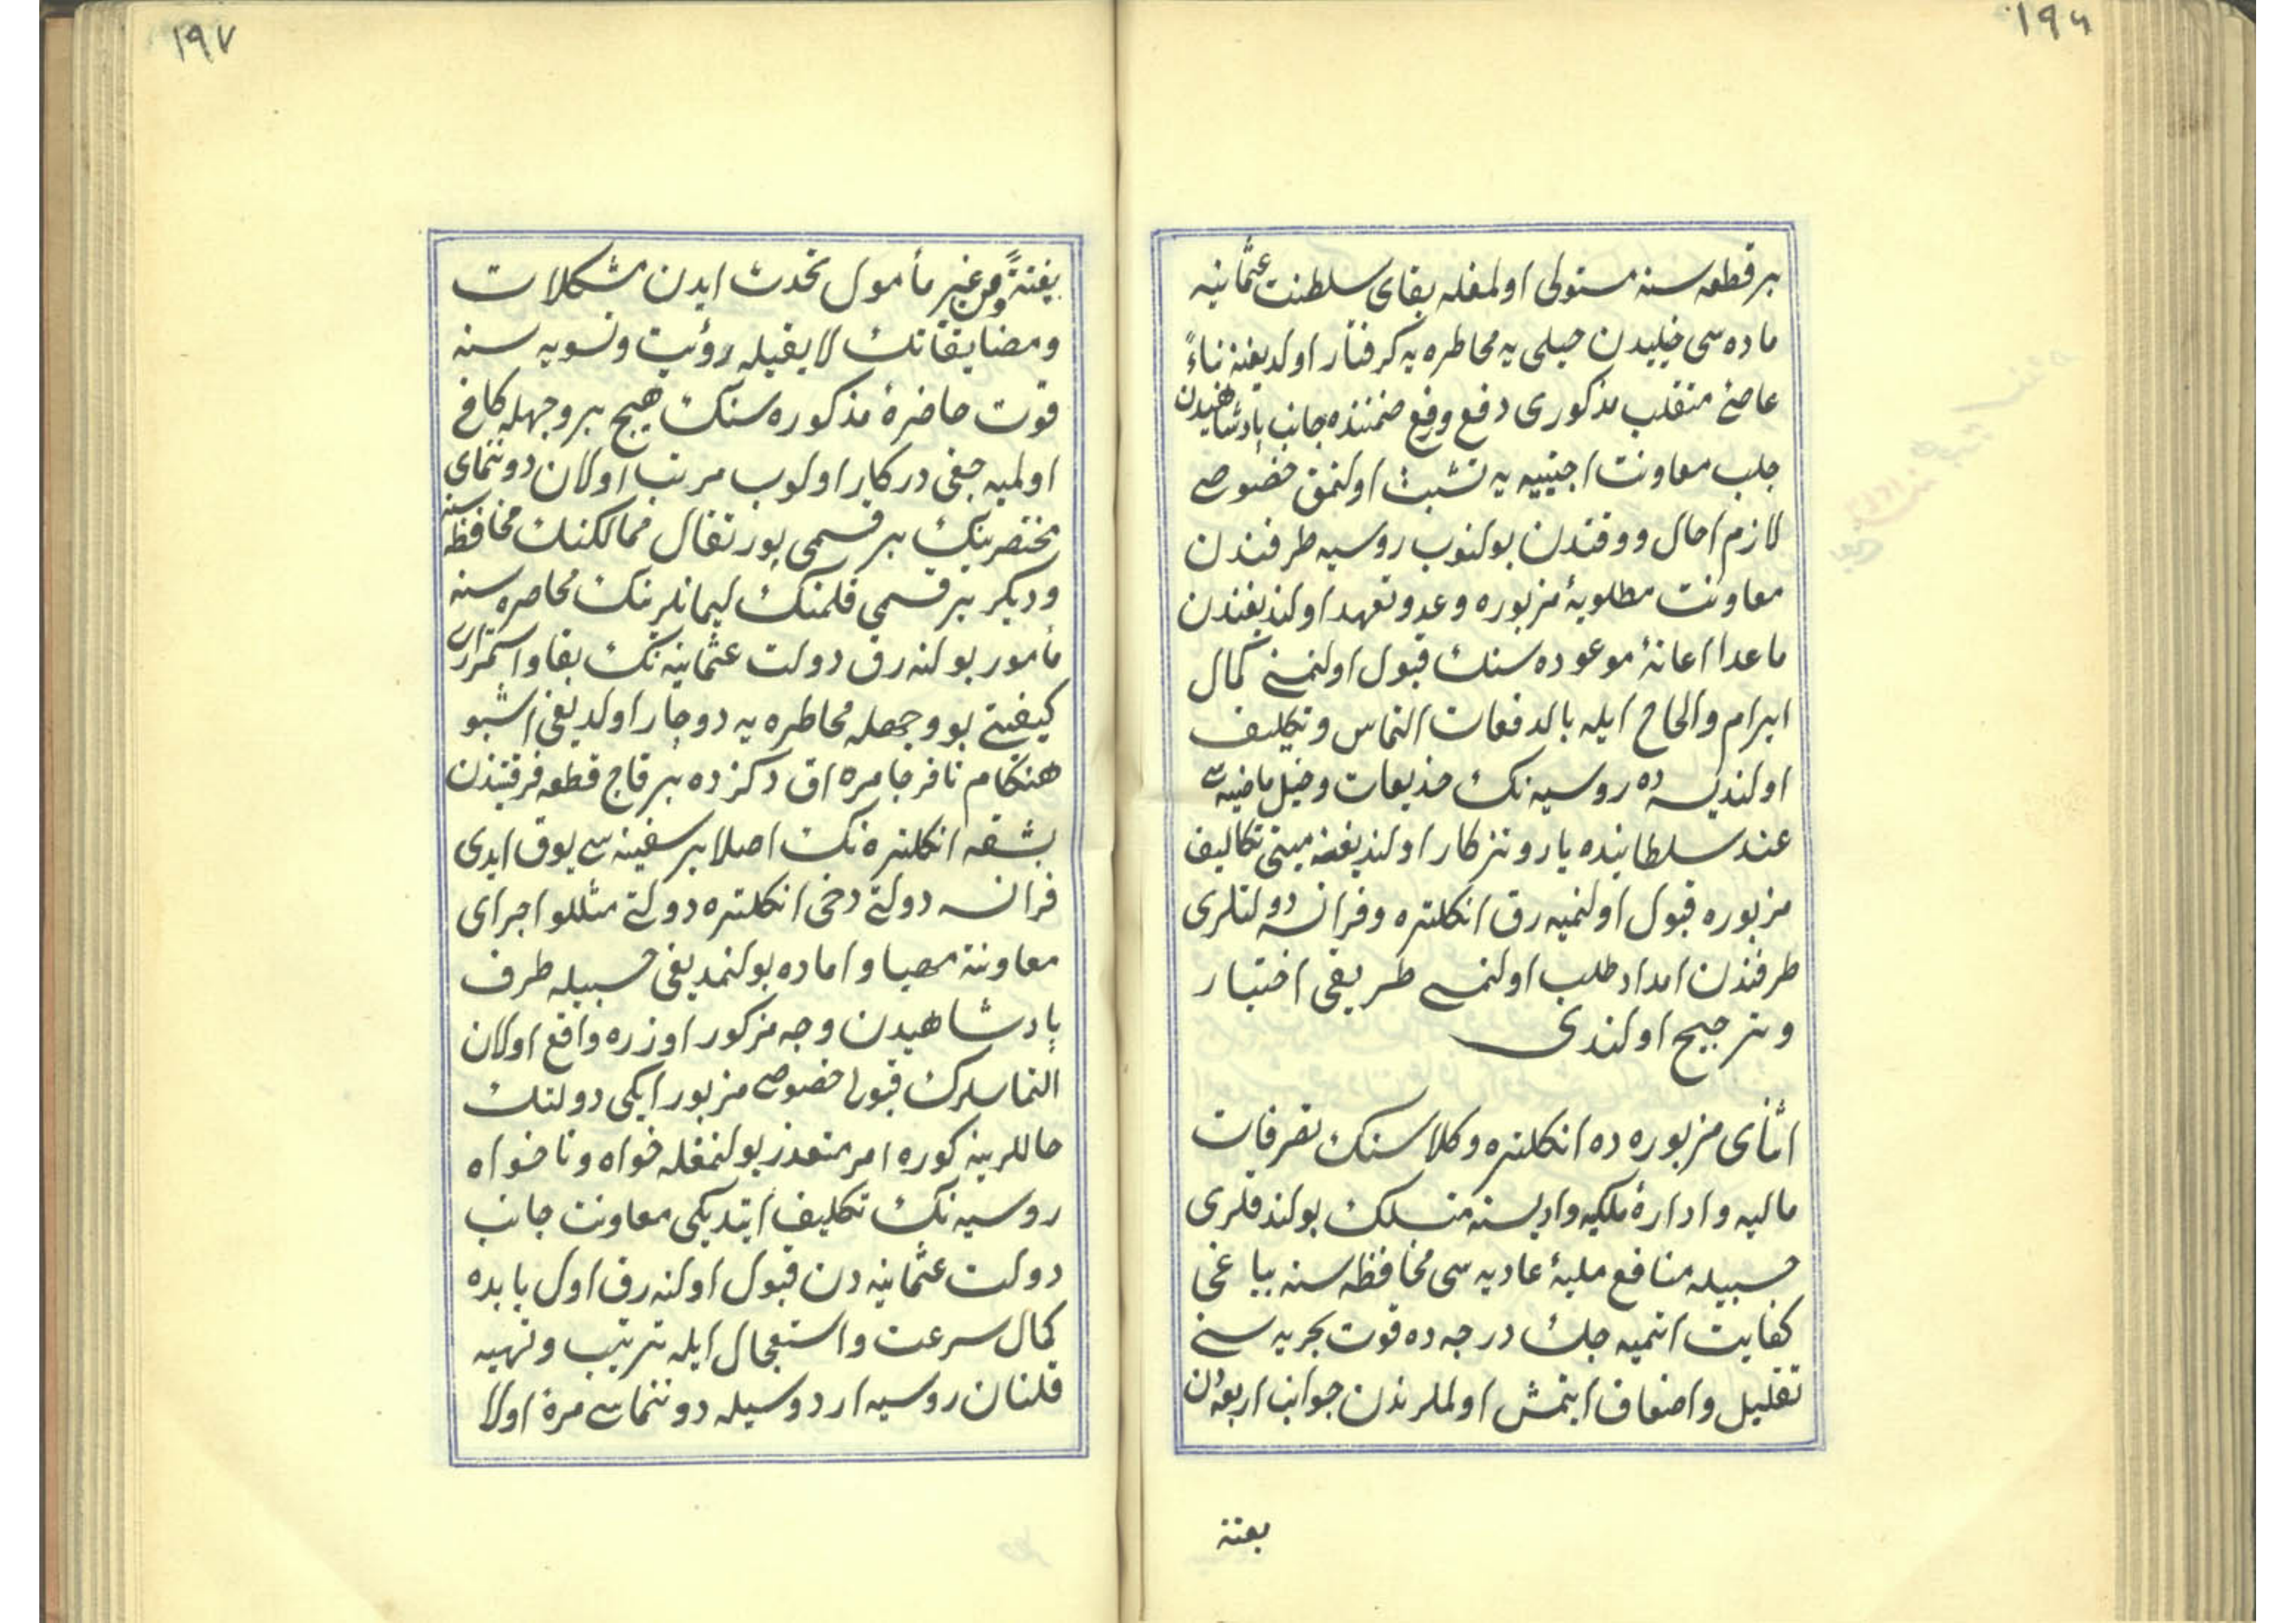 ١٩٦
بر قطعه سنه مستولی اولمغله بقای سلطنت عثمانیه
ماده سی خیلیدن خیلی یه مخاطره یه کرفتار اولدیغنه بناءً
عاصئ متغلب مذکوری دفع و رفع ضمننده جانب پادشاهیدن
جلب معاونت اجنبیه یه تشبث اولنمق خصوصی
لازم احال و وقتدن بولنوب روسیه طرفندن
معاونت مطلوبهٔ مزبوره وعد و تعهد اولندیغندن
ماعدا اعانهٔ موعوده سنک قبول اولنمسی کمال
ابرام والحاح ایله بالدفعات التماس و تکلیف
اولندیسه ده روسیه نک خدیعات و حیل ماضیه سی
عند سلطانیده یار و تذکار اولندیغنه مبنی تکالیف
مزبوره قبول اولنمیه رق انکلتره و فرانسه دولتلری
طرفندن امداد طلب اولنمسی طریقی اختیار
و ترجیح اولندی
اثنای مزبوره ده انکلتره وکلاسنک تصرفات
مالیه و ادارهٔ ملکیه وادیسنه منسلک بولندقلری
حسبیله منافع ملیهٔ عادیه سی محافظه سنه بیاغی
کفایت اتمیه جک درجه ده قوت بحریه سنی
تقلیل و اضعاف ایتمش اولملرندن جوانب اربعه دن
بغتة
١٩٧
بغتةً و من غیر مأمول تحدث ایدن مشکلات
و مضایقاتک لایقیله رؤیت و تسویه سنه
قوت حاضرهٔ مذکوره سنک هیچ بر وجهله کافی
اولمیه جغی درکار اولوب مرتب اولان دوننمای
مختصرینک بر قسمی پورتقال ممالکنک محافظه سنه
و دیکر بر قسمی فلمنک لیمانلرینک محاصره سنه
مأمور بولنه رق دولت عثمانیه نک بقا و استمراری
کیفیتی بو وجهله مخاطره یه دوچار اولدیغی اشبو
هنکام نافرجامده اق دکزده بر قاچ قطعه فرقتیندن
بشقه انکلتره نک اصلا بر سفینه سی یوق ایدی
فرانسه دولتی دخی انکلتره دولتی مثللو اجرای
معاونته مهیا و اماده بولنمدیغی حسبیله طرف
پادشاهیدن وجه مزکور اوزره واقع اولان
التماسلرک قبولی خصوصی مزبور ایکی دولتک
حاللرینه کوره امر متعذر بولنمغله خواه و ناخواه
روسیه نک تکلیف ایتدیکی معاونت جانب
دولت عثمانیه دن قبول اولنه رق اول بابده
کمال سرعت و استعجال ایله ترتیب و تهیه
قلنان روسیه اردوسیله دوننماسی مرة اولا